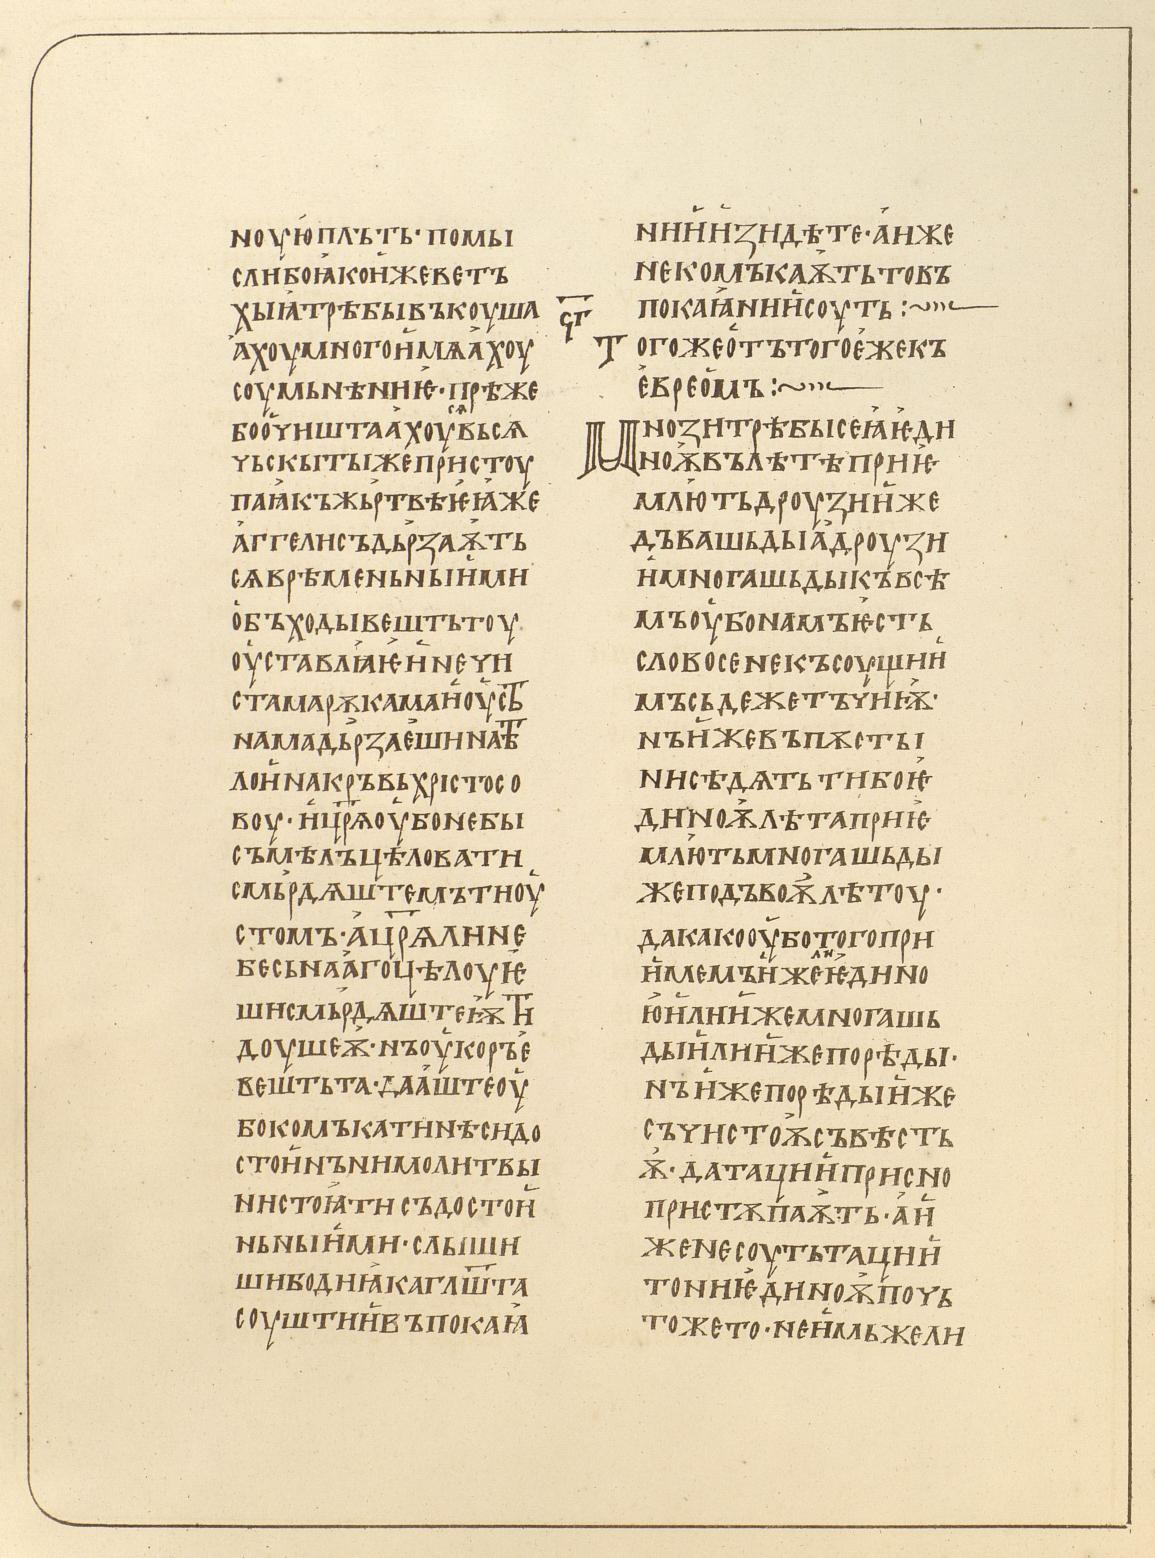 ноую плъть· помы
сли бо ꙗко иже ветъ
хыꙗ трѣбы въкоуша
ахоу много имѧахоу
соумьнѣниѥ· прѣже
бо очиштаахоусѧ вьсѧ
чьскы ти же пристоу
паꙗ къ жьртвѣ ѥꙗже
аггели съдьрзаѭть
сѧ врѣменьныими
обѣходы вештьтоу
оуставлꙗѥи нечи
стама рѫкама и оустъ
нама дьрзаеши на тѣ
ло и на кръвь христосо
воу· и црѧ оубо не бы
съмѣлъ цѣловати
смьрдѧштемъ ти оу
стомъ· а црѧ ли не
бесьнааго цѣлоуѥ
ши смьрдѧштеѭ ти
доушеѭ· нъ оукоръ е
вештьта· да аште оу
бо комъкати нѣси до
стоинъ ни молитвы
ни стоꙗти съ достои
ньныими· слыши
ши бо диꙗка глшта
соуштии въ покаꙗ
нии изидѣте· а иже
не комъкаѭть то въ
покаꙗнии соуть :~
сг
Того же отъ того еже къ
евреомъ :~
Мнози трѣбы сеꙗ ѥди
ноѭ въ лѣтѣприѥ
млють дроузии же
дъвашьды а дроузи
и многашьды къ всѣ
мъ оубо намъ ѥсть
слово се не къ соущии
мъ сьде же тъчиѭ·
нъ иже въ пѫсты
ни сѣдѧть ти бо ѥ
диноѭ лѣта приѥ
млють многашьды
же подъвоѭ лѣтоу·
да како оубо того при
имемъ иже ли ѥдино
ю или иже многашь
ды или иже порѣды·
нъ иже порѣды иже
съ чистоѭ съвѣсть
ѭ· да тации присно
пристѫпаѭть· а и
же не соуть тации
то ни ѥдиноѭ почь
то же то· не имь же ли